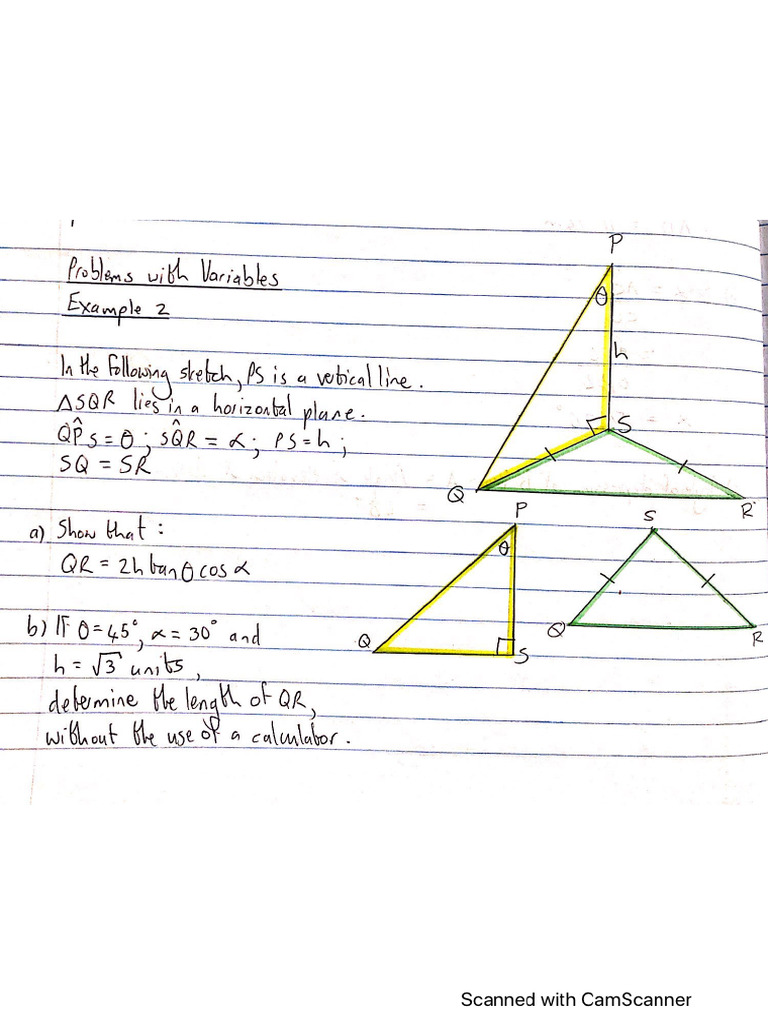 Problems with Variables
Example 2
In the following sketch, PS is a vertical line.
△SQR lies in a horizontal plane.
QP̂S = θ ; SQ̂R = α ; PS = h ;
SQ = SR
a) Show that :
QR = 2h tan θ cos α
b) If θ = 45°, α = 30° and
h = √3 units,
determine the length of QR,
without the use of a calculator.
P
θ
h
S
Q
R
P
θ
Q
S
S
Q
R
Scanned with CamScanner